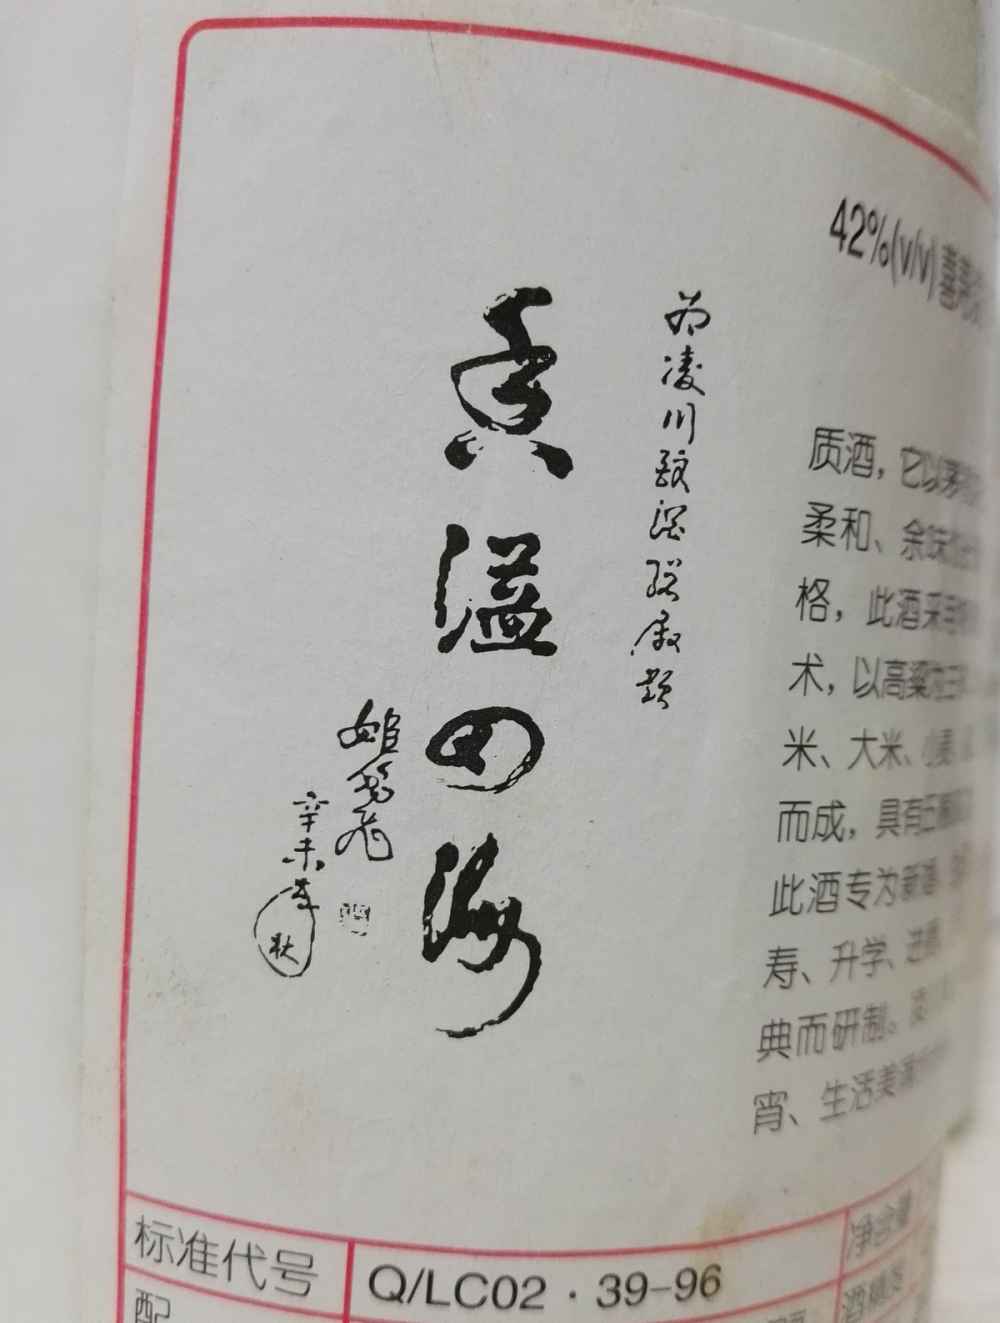 42%(v/v)喜寿
质酒，它以茅
柔和、余味
格，此酒采用
术，以高粱
米、大米、小麦
而成，具有
此酒专为新婚
寿、升学、进
典而研制。凌
宵、生活美满
为凌川酿酒总厂题
香溢四海
辛未年秋
标准代号
Q/LC02·39-96
净含量
酒精度
配